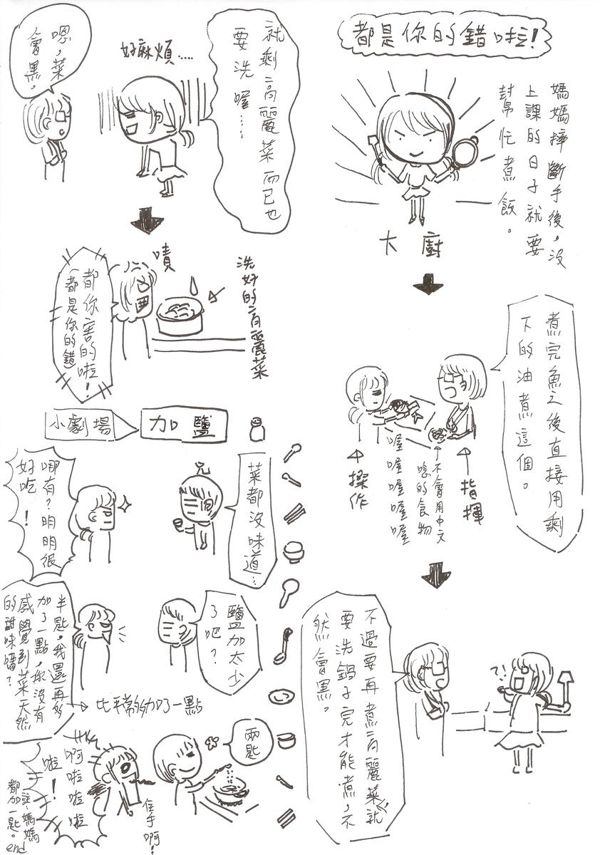 都是你的錯啦!
媽媽摔斷手後，沒
上課的日子就要
幫忙煮飯。
大廚
煮完魚之後直接用剩
下的油煮這個。
↑指揮
↑操作
↑不會用中文
唸的食物
喔喔喔喔喔
不過要再煮高麗菜就
要洗鍋子完才能煮，不
然會黑。
?!
就剩高麗菜而已也
要洗喔……
好麻煩……
嗯，菜
會黑。
洗好的高麗菜
嘖
都你害的啦!
(都是你的錯
小劇場
加鹽
菜都沒味道…
哪有?明明很
好吃!
鹽加太少
了吧?
半匙，我還再多
加了一點，你沒有
感覺到菜天然
的甜味嗎?
→比平常多加了一點
兩匙
住手啊!
啊啦啦啦
啦!
註:媽媽
都加一匙。end